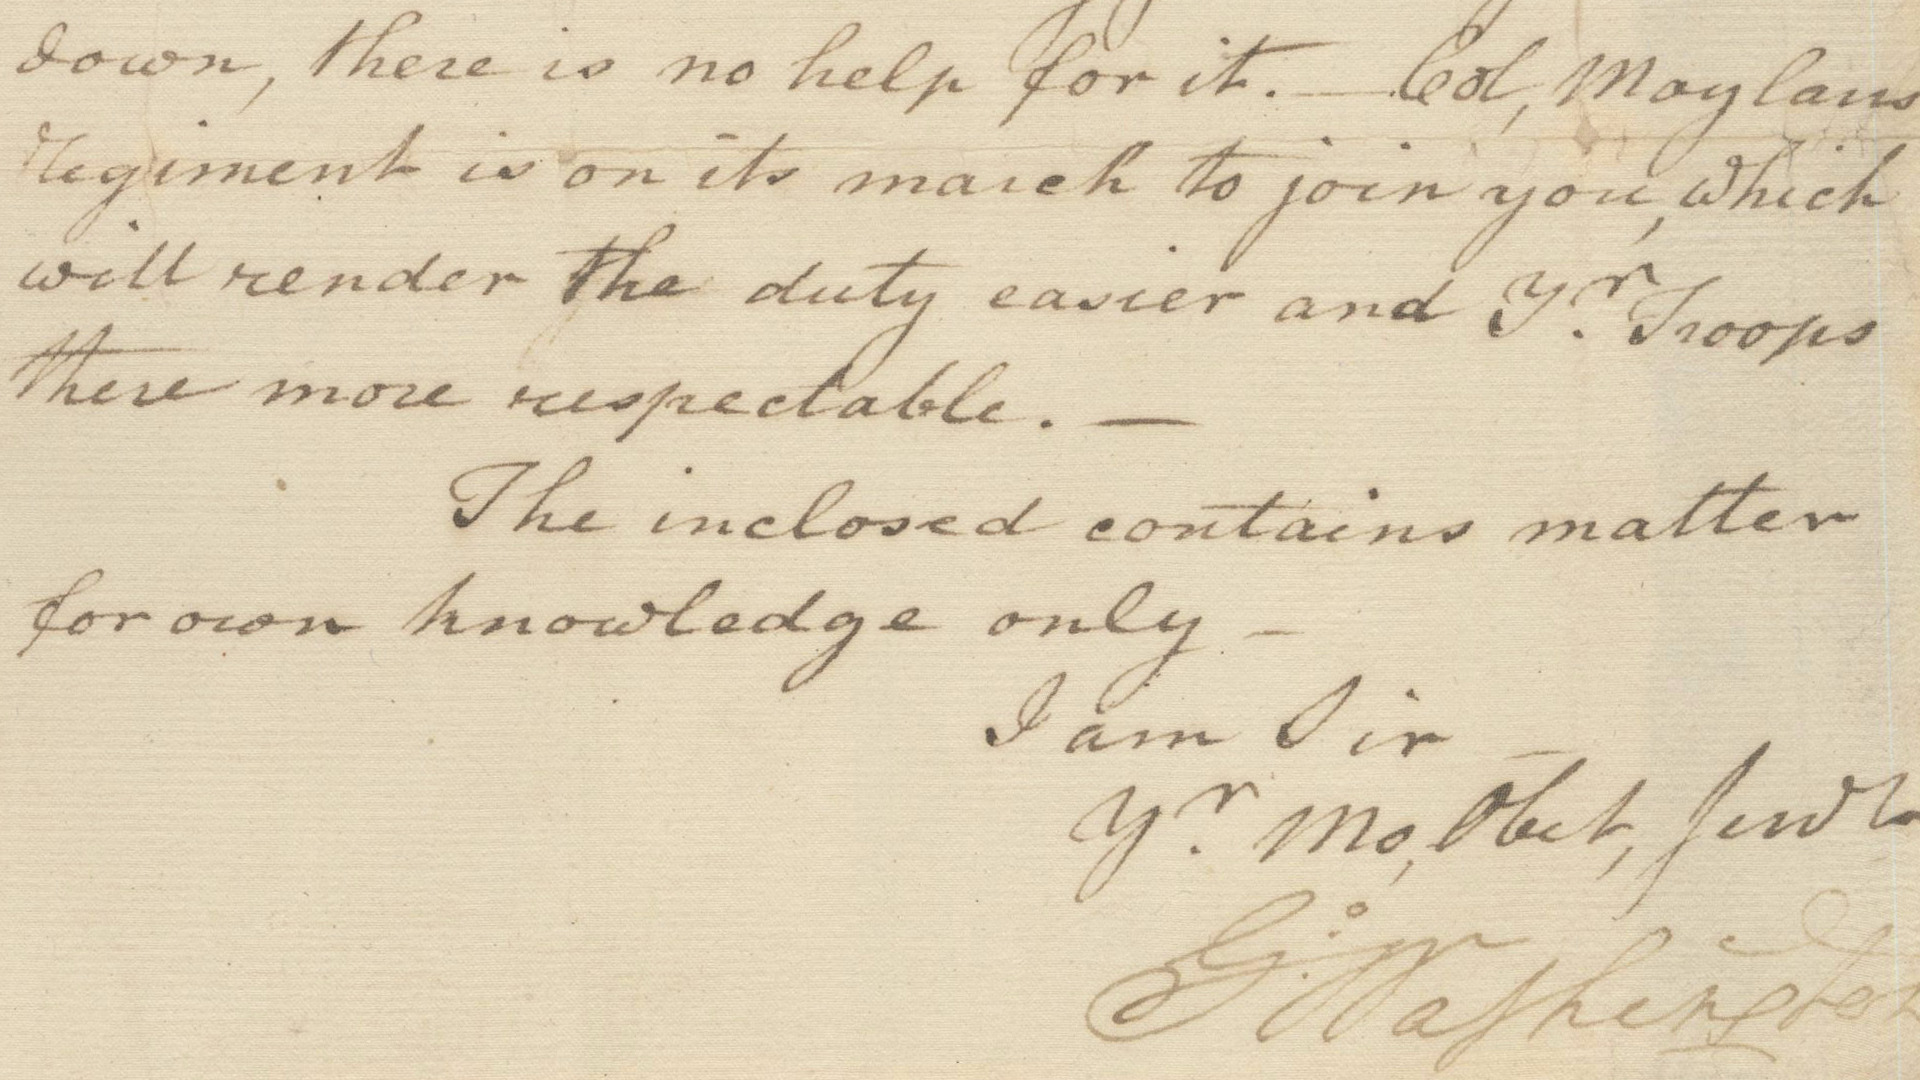 down, there is no help for it. — Col, Moylans
regiment is on its march to join you, which
will render the duty easier and Yr. Troops
there more respectable. —
The inclosed contains matter
for own knowledge only –
I am Sir –
Yr. Mo, Obet, Servt
Go: Washington